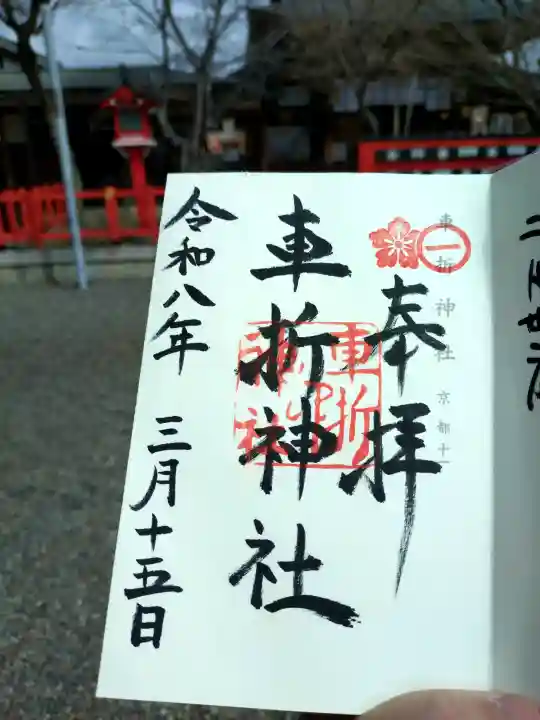 車折神社 京都十
一
奉拝
車折神社
車折神社
令和八年 三月十五日